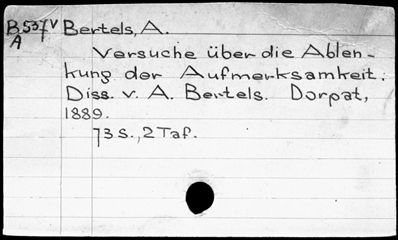 B537v Bertels, A.
A
Versuche über die Ablen-
kung der Aufmerksamkeit.
Diss. v. A. Bertels. Dorpat,
1889.
73 S., 2 Taf.